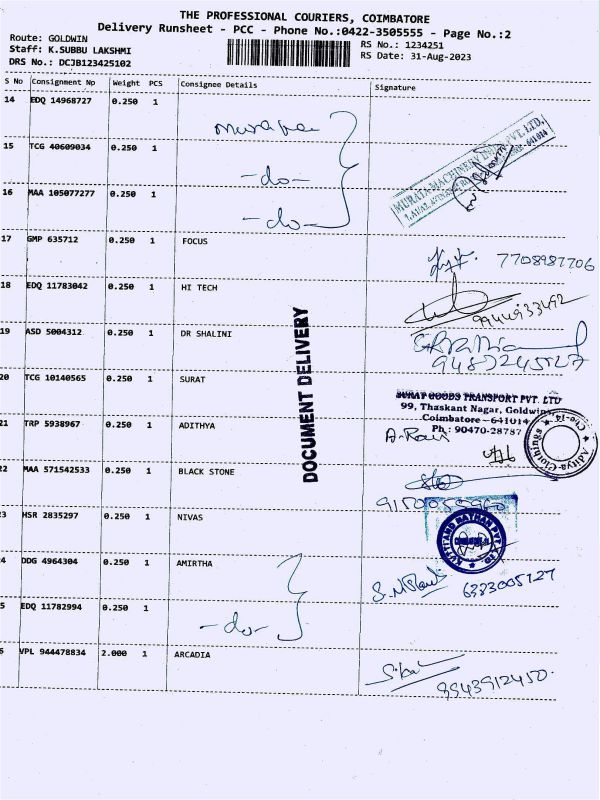 THE PROFESSIONAL COURIERS, COIMBATORE
Delivery Runsheet - PCC - Phone No.:0422-3505555 - Page No.:2
Route: GOLDWIN
Staff: K.SUBBU LAKSHMI
DRS No.: DCJB123425102
RS No.: 1234251
RS Date: 31-Aug-2023
S No Consignment No Weight PCS Consignee Details Signature
14 EDQ 14968727 0.250 1
15 TCG 40609034 0.250 1 -do-
16 MAA 105077277 0.250 1 -do-
MURATA MACHINERY PVT. LTD.
17 GMP 635712 0.250 1 FOCUS 7708987706
18 EDQ 11783042 0.250 1 HI TECH 9944933492
19 ASD 5004312 0.250 1 DR SHALINI
20 TCG 10140565 0.250 1 SURAT
SURAT GOODS TRANSPORT PVT. LTD
99, Thaskant Nagar, Goldwins,
Coimbatore - 641014
Ph : 90470-28787
21 TRP 5938967 0.250 1 ADITHYA A. Ravi
22 MAA 571542533 0.250 1 BLACK STONE
23 HSR 2835297 0.250 1 NIVAS
24 DDG 4964304 0.250 1 AMIRTHA 6383005127
25 EDQ 11782994 0.250 1 -do-
26 VPL 944478834 2.000 1 ARCADIA 9943912450
DOCUMENT DELIVERY